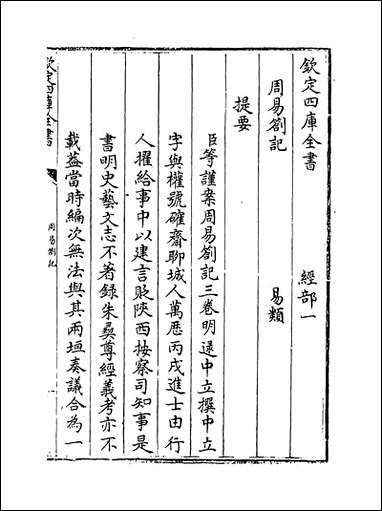 欽定四庫全書　經部一
周易劄記　易類
提要
臣等謹案周易劄記三卷明逯中立撰中立
字與權號確齋聊城人萬厯丙戌進士由行
人擢給事中以建言貶陜西按察司知事是
書明史藝文志不著録朱彛尊經義考亦不
載葢當時編次無法與其兩垣奏議合為一
欽定四庫全書
周易劄記